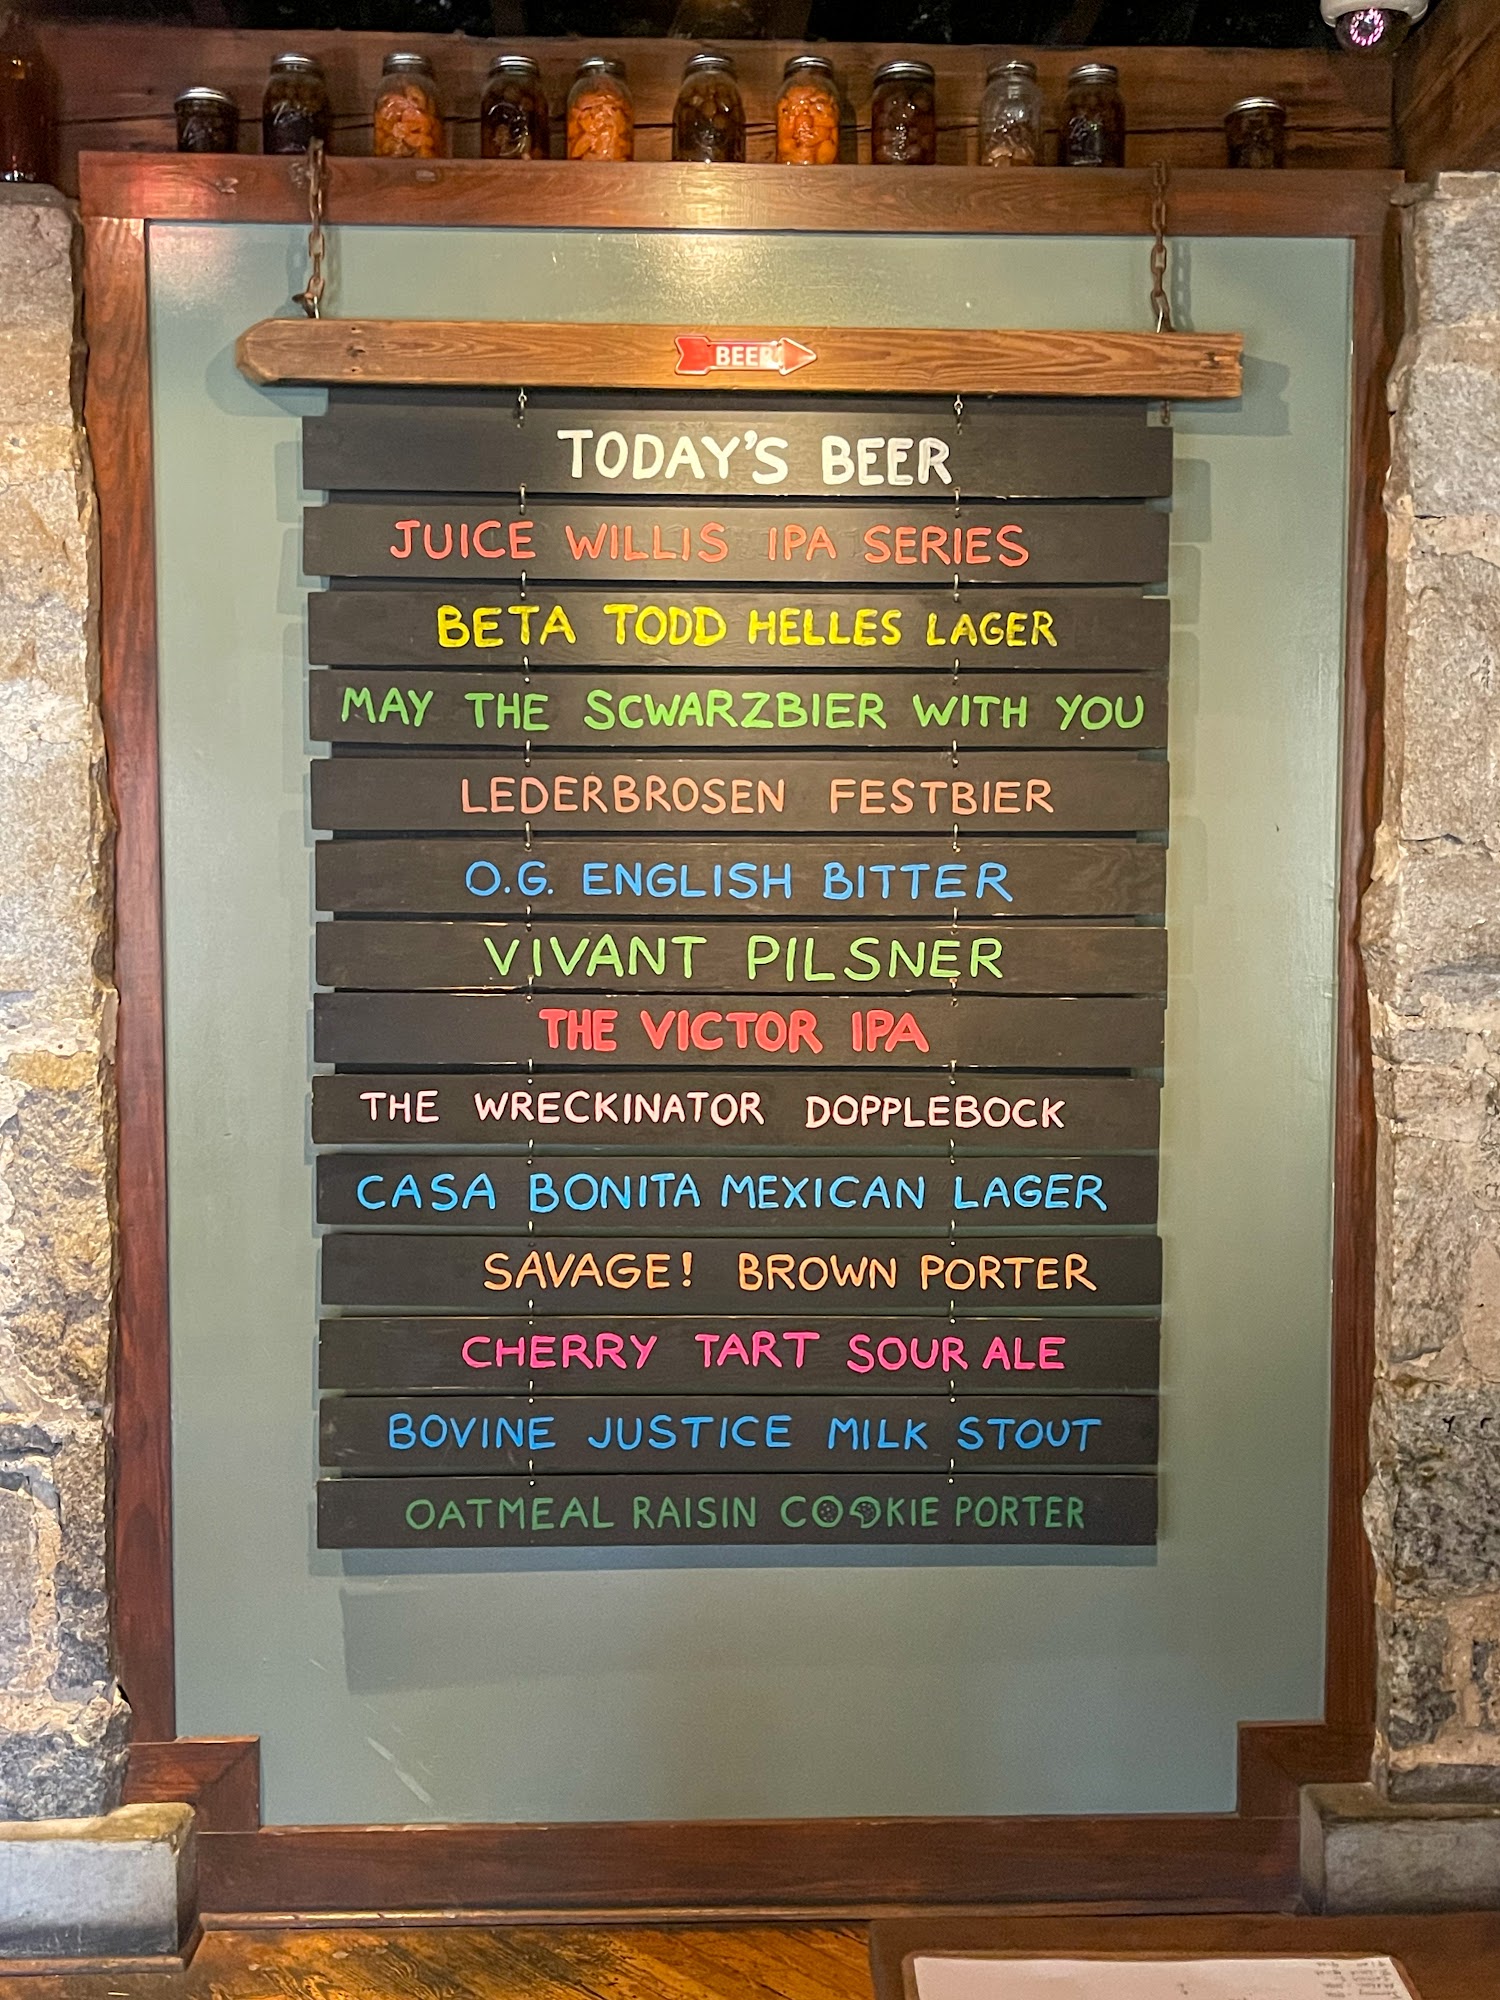 BEER
TODAY'S BEER
JUICE WILLIS IPA SERIES
BETA TODD HELLES LAGER
MAY THE SCWARZBIER WITH YOU
LEDERBROSEN FESTBIER
O.G. ENGLISH BITTER
VIVANT PILSNER
THE VICTOR IPA
THE WRECKINATOR DOPPLEBOCK
CASA BONITA MEXICAN LAGER
SAVAGE! BROWN PORTER
CHERRY TART SOUR ALE
BOVINE JUSTICE MILK STOUT
OATMEAL RAISIN COOKIE PORTER